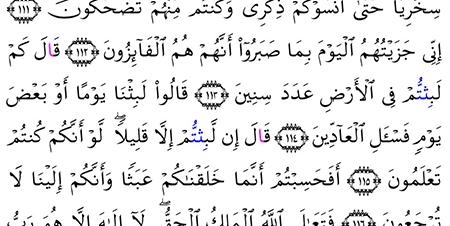 سِخْرِيًّا حَتَّىٰٓ أَنسَوْكُمْ ذِكْرِى وَكُنتُم مِّنْهُمْ تَضْحَكُونَ ١١١
إِنِّى جَزَيْتُهُمُ ٱلْيَوْمَ بِمَا صَبَرُوٓا۟ أَنَّهُمْ هُمُ ٱلْفَآئِزُونَ ١١٢ قَالَ كَمْ
لَبِثْتُمْ فِى ٱلْأَرْضِ عَدَدَ سِنِينَ ١١٣ قَالُوا۟ لَبِثْنَا يَوْمًا أَوْ بَعْضَ
يَوْمٍ فَسْـَٔلِ ٱلْعَآدِّينَ ١١٤ قَالَ إِن لَّبِثْتُمْ إِلَّا قَلِيلًا ۖ لَّوْ أَنَّكُمْ كُنتُمْ
تَعْلَمُونَ ١١٥ أَفَحَسِبْتُمْ أَنَّمَا خَلَقْنَٰكُمْ عَبَثًا وَأَنَّكُمْ إِلَيْنَا لَا
تُرْجَعُونَ ١١٦ فَتَعَٰلَى ٱللَّهُ ٱلْمَلِكُ ٱلْحَقُّ ۖ لَآ إِلَٰهَ إِلَّا هُوَ رَبُّ